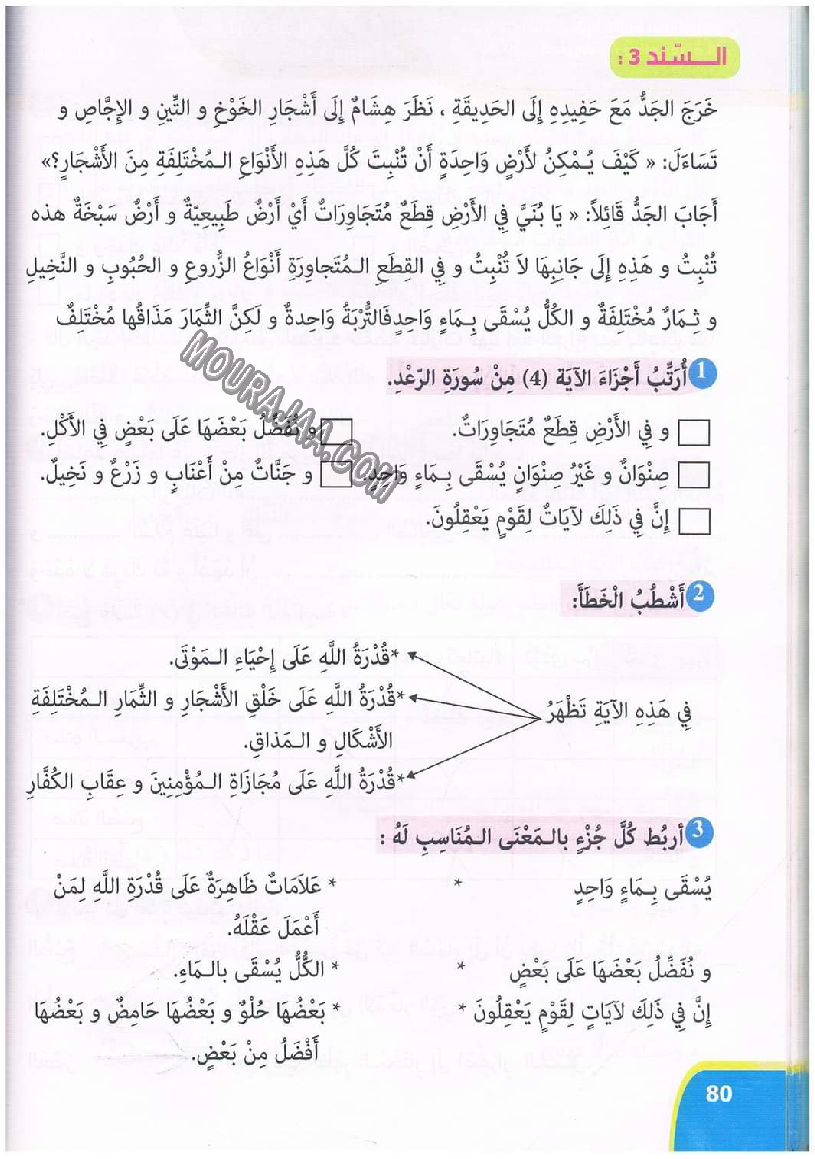 الـــسّند 3 :
خَرَجَ الجَدُّ مَعَ حَفِيدِهِ إِلَى الحَدِيقَةِ ، نَظَرَ هِشَامٌ إِلَى أَشْجَارِ الخَوْخِ و التِّينِ و الإِجَّاصِ و
تَسَاءَلَ: « كَيْفَ يُـمْكِنُ لأَرْضٍ وَاحِدَةٍ أَنْ تُنْبِتَ كُلَّ هَذِهِ الأَنْوَاعِ الـمُخْتَلِفَةِ مِنَ الأَشْجَارِ؟»
أَجَابَ الجَدُّ قَائِلاً: « يَا بُنَيَّ فِي الأَرْضِ قِطَعٌ مُتَجَاوِرَاتٌ أَيْ أَرْضٌ طَبِيعِيّةٌ و أَرْضٌ سَبْخَةٌ هذه
تُنْبِتُ و هَذِهِ إِلَى جَانِبِهَا لاَ تَنْبِتُ و فِي القِطَعِ الـمُتَجاوِرَةِ أَنْوَاعُ الزُّروعِ و الحُبُوبِ و النَّخِيلِ
و ثِـمَارٌ مُخْتَلِفَةٌ و الكُلُّ يُسْقَى بِـمَاءٍ وَاحِدٍ فَالتُّرْبَةُ وَاحِدةٌ و لَكِنَّ الثِّمَارَ مَذَاقُها مُخْتَلِفٌ
1 أُرَتِّبُ أَجْزَاءَ الآيَة (4) مِنْ سُورَةِ الرّعْدِ.
و فِي الأَرْضِ قِطَعٌ مُتَجَاوِرَاتٌ. و نُفَضِّلُ بَعْضَهَا عَلَى بَعْضٍ فِي الأُكْلِ.
صِنْوَانٌ و غَيْرُ صِنْوَانٍ يُسْقَى بِـمَاءٍ وَاحِدٍ. و جَنَّاتٌ مِنْ أَعْنَابٍ و زَرْعٌ و نَخِيلٌ.
إِنَّ فِي ذَلِكَ لآيَاتٌ لِقَوْمٍ يَعْقِلُونَ.
MOURAJAA.COM
2 أَشْطُبُ الْخَطَأَ:
*قُدْرَةُ اللَّهِ عَلَى إِحْيَاءِ الـمَوْتَى.
فِي هَذِهِ الآيَةِ تَظْهَرُ *قُدْرَةُ اللَّهِ عَلَى خَلْقِ الأَشْجَارِ و الثِّمَارِ الـمُخْتَلِفَةِ
الأَشْكَالِ و الـمَذَاقِ.
*قُدْرَةُ اللَّهِ عَلَى مُجَازَاةِ الـمُؤْمِنِينَ و عِقَابِ الكُفَّارِ
3 أربُط كُلَّ جُزْءٍ بالـمَعْنَى الـمُنَاسِبِ لَهُ :
يُسْقَى بِـمَاءٍ وَاحِدٍ * * عَلاَمَاتٌ ظَاهِرَةٌ عَلَى قُدْرَةِ اللَّهِ لِمَنْ
أَعْمَلَ عَقْلَهُ.
و نُفَضِّلُ بَعْضَهَا عَلَى بَعْضٍ * * الكُلُّ يُسْقَى بالـمَاءِ.
إِنَّ فِي ذَلِكَ لآيَاتٍ لِقَوْمٍ يَعْقِلُونَ * * بَعْضُهَا حُلْوٌ و بَعْضُهَا حَامِضٌ و بَعْضُهَا
أَفْضَلُ مِنْ بَعْضٍ.
80